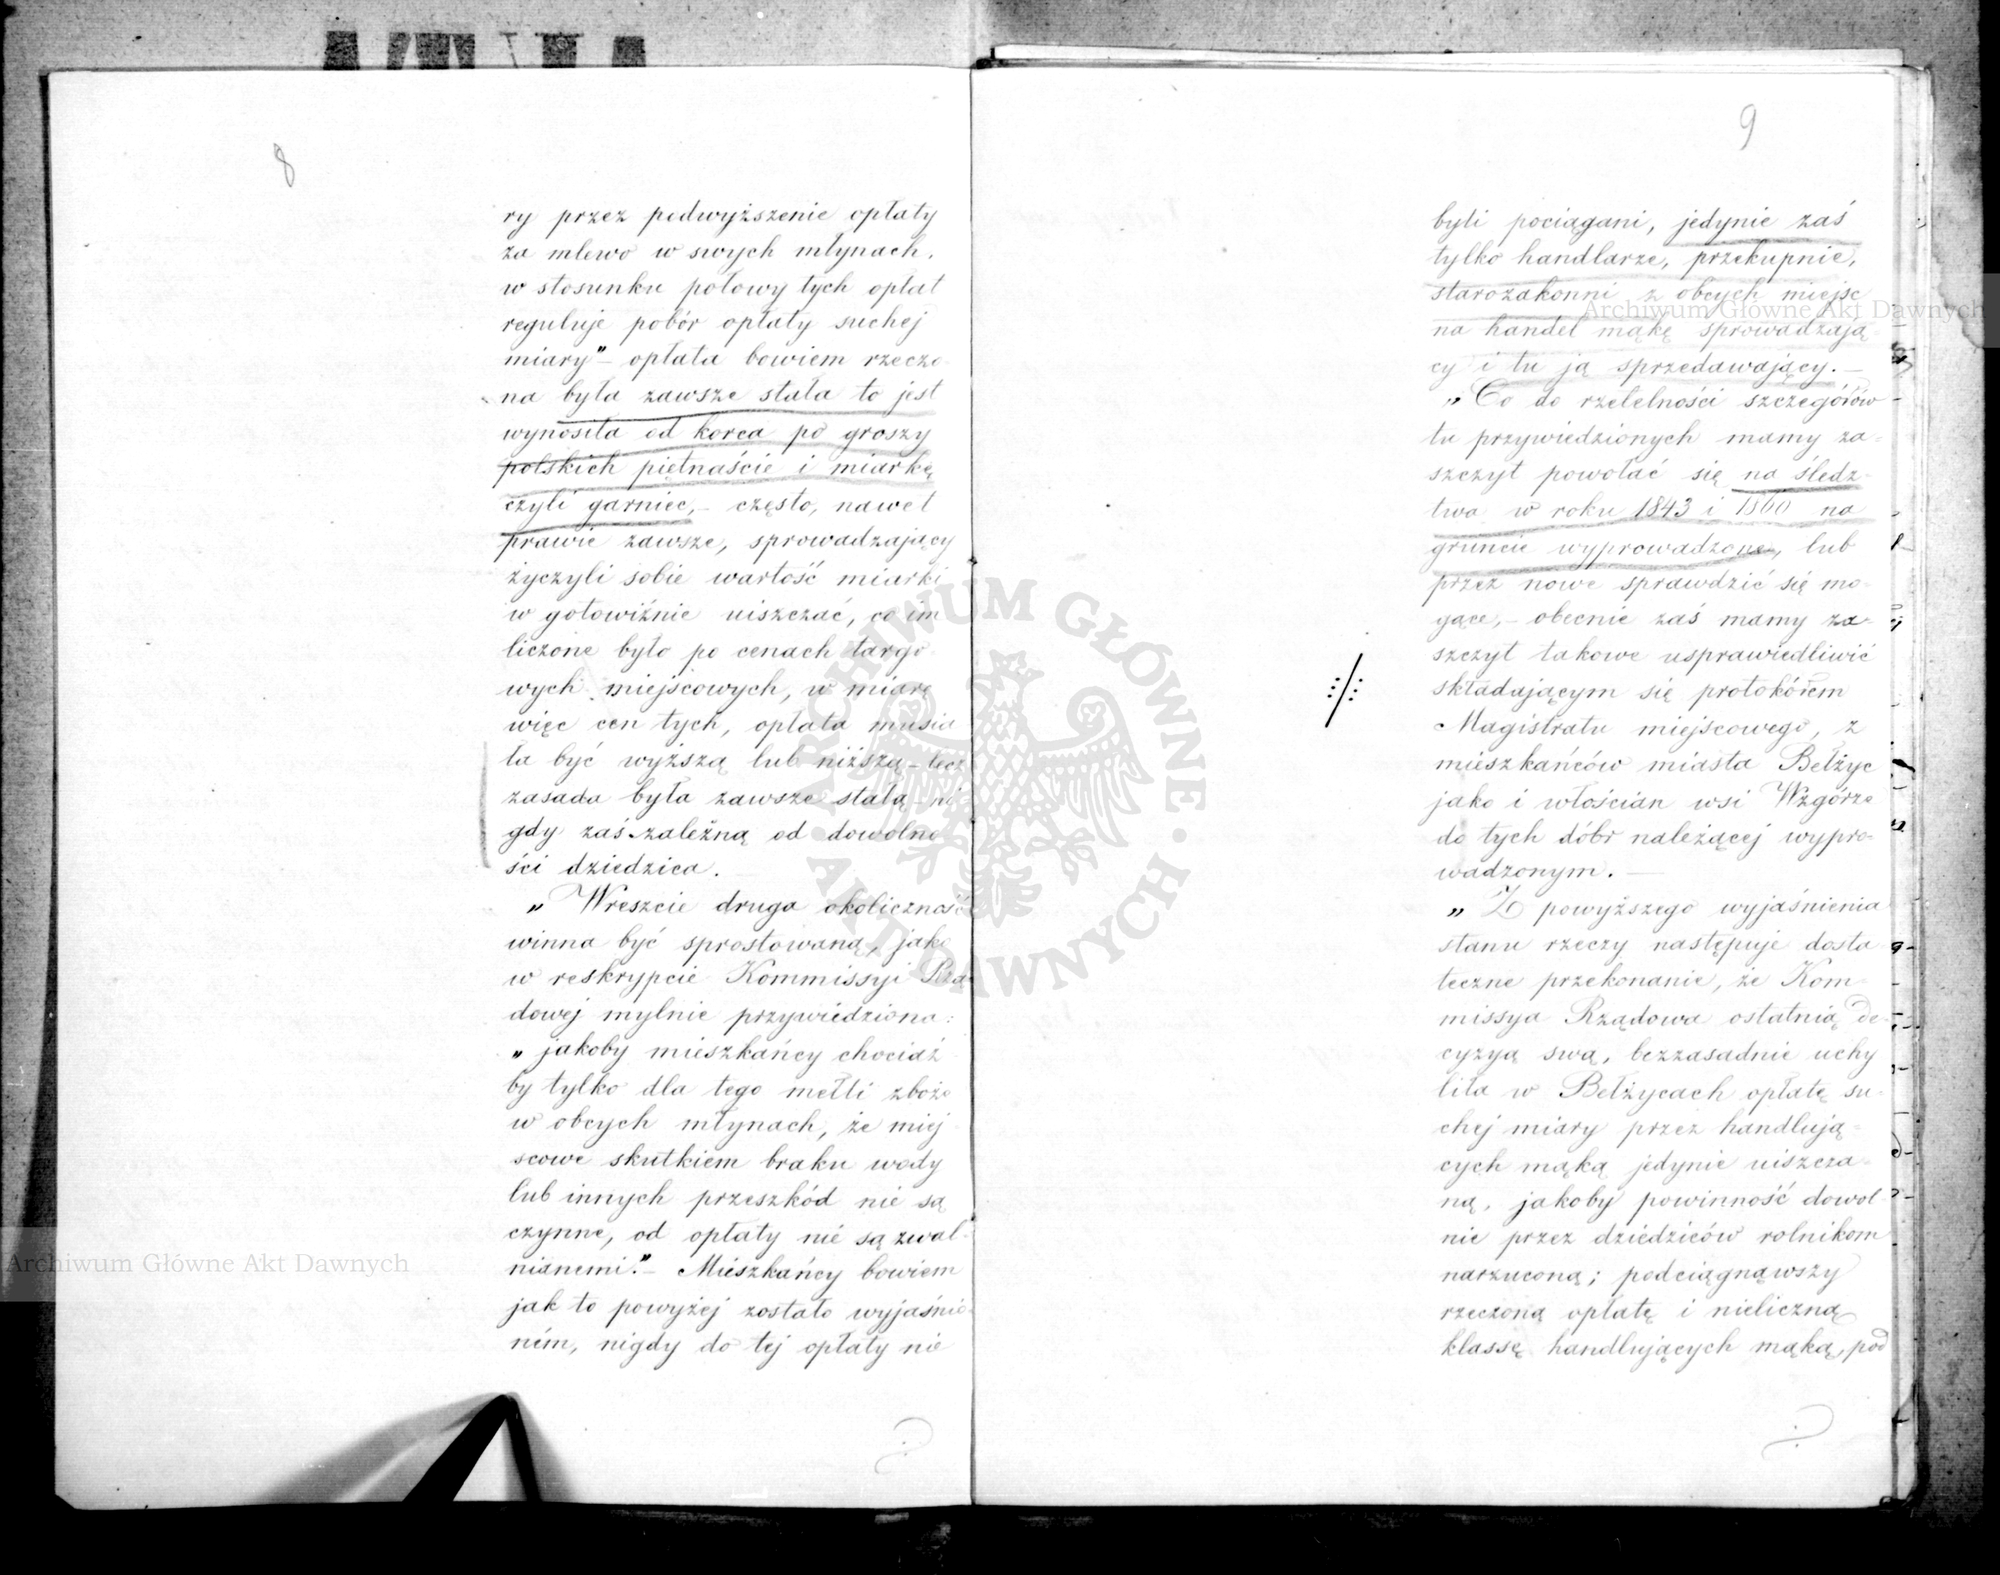 8
ry przez podwyższenie opłaty
za mlewo w swych młynach,
w stosunku połowy tych opłat
reguluje pobór opłaty suchej
miary" – opłata bowiem rzeczo
na była zawsze stała to jest
wynosiła od korca po groszy
polskich piętnaście i miarkę
czyli garniec, – często, nawet
prawie zawsze, sprowadzający
życzyli sobie wartość miarki
w gotowiźnie uiszczać, co im
liczone było po cenach targo
wych miejscowych, w miarę
więc cen tych, opłata musia
ła być wyższą lub niższą – lecz
zasada była zawsze stałą – ni
gdy zaś zależną od dowolno
ści dziedzica. –
„ Wreszcie druga okoliczność
winna być sprostowaną, jako
w reskrypcie Kommissyi Rzą
dowej mylnie przywiedziona:
„ jakoby mieszkańcy chociaż
by tylko dla tego mełli zboże
w obcych młynach, że miej
scowe skutkiem braku wody
lub innych przeszkód nie są
czynne, od opłaty nie są zwal-
nianemi." – Mieszkańcy bowiem
jak to powyżej zostało wyjaśnio
ném, nigdy do tej opłaty nie
9
byli pociągani, jedynie zaś
tylko handlarze, przekupnie,
starozakonni z obcych miejsc
na handel mąkę sprowadzają
cy i tu ją sprzedawający. –
„ Co do rzetelności szczegółów
tu przywiedzionych mamy za-
szczyt powołać się na śledz
twa w roku 1843 i 1860 na
gruncie wyprowadzone, lub
przez nowe sprawdzić się mo-
gące, – obecnie zaś mamy za-
szczyt takowe usprawiedliwić
składającym się protokółem
Magistratu miejscowego, z
mieszkańców miasta Bełżyc
jako i włościan wsi Wzgórze
do tych dóbr należącej wypro-
wadzonym. –
„ Z powyższego wyjaśnienia
stanu rzeczy następuje dosta
teczne przekonanie, że Kom-
missya Rządowa ostatnią de-
cyzyą swą, bezzasadnie uchy
liła w Bełżycach opłatę su-
chej miary przez handlują-
cych mąką jedynie uiszcza-
ną, jakoby powinność dowol-
nie przez dziedziców rolnikom
narzuconą; podciągnąwszy
rzeczoną opłatę i nieliczną
klassę handlujących mąką, pod
Archiwum Główne Akt Dawnych
Archiwum Główne Akt Dawnych
ARCHIWUM GŁÓWNE AKT DAWNYCH